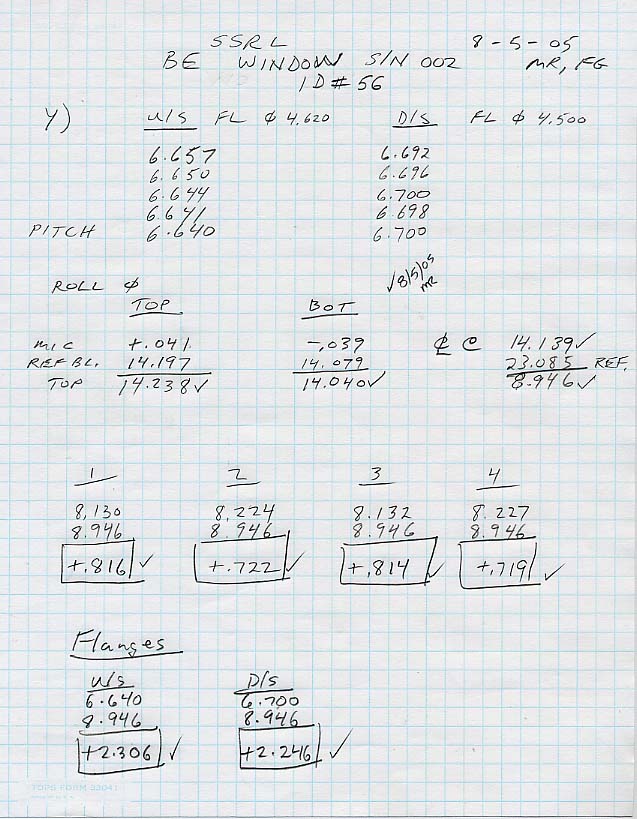 SSRL 8-5-05
BE WINDOW S/N 002 MR, FG
ID # 56
Y) U/S FL ϕ 4.620 D/S FL ϕ 4.500
6.657 6.692
6.650 6.696
6.644 6.700
6.641 6.698
PITCH 6.640 6.700
ROLL ϕ √8/5/05 MR
TOP BOT
MIC +.041 -.039 ℄ @ 14.139✓
REF BL. 14.197 14.079 23.085 REF.
TOP 14.238✓ 14.040✓ 8.946✓
1 2 3 4
8.130 8.224 8.132 8.227
8.946 8.946 8.946 8.946
+.816 ✓ +.722 ✓ +.814 ✓ +.719 ✓
Flanges
U/S D/S
6.640 6.700
8.946 8.946
+2.306 ✓ +2.246 ✓
TOPS FORM 33041